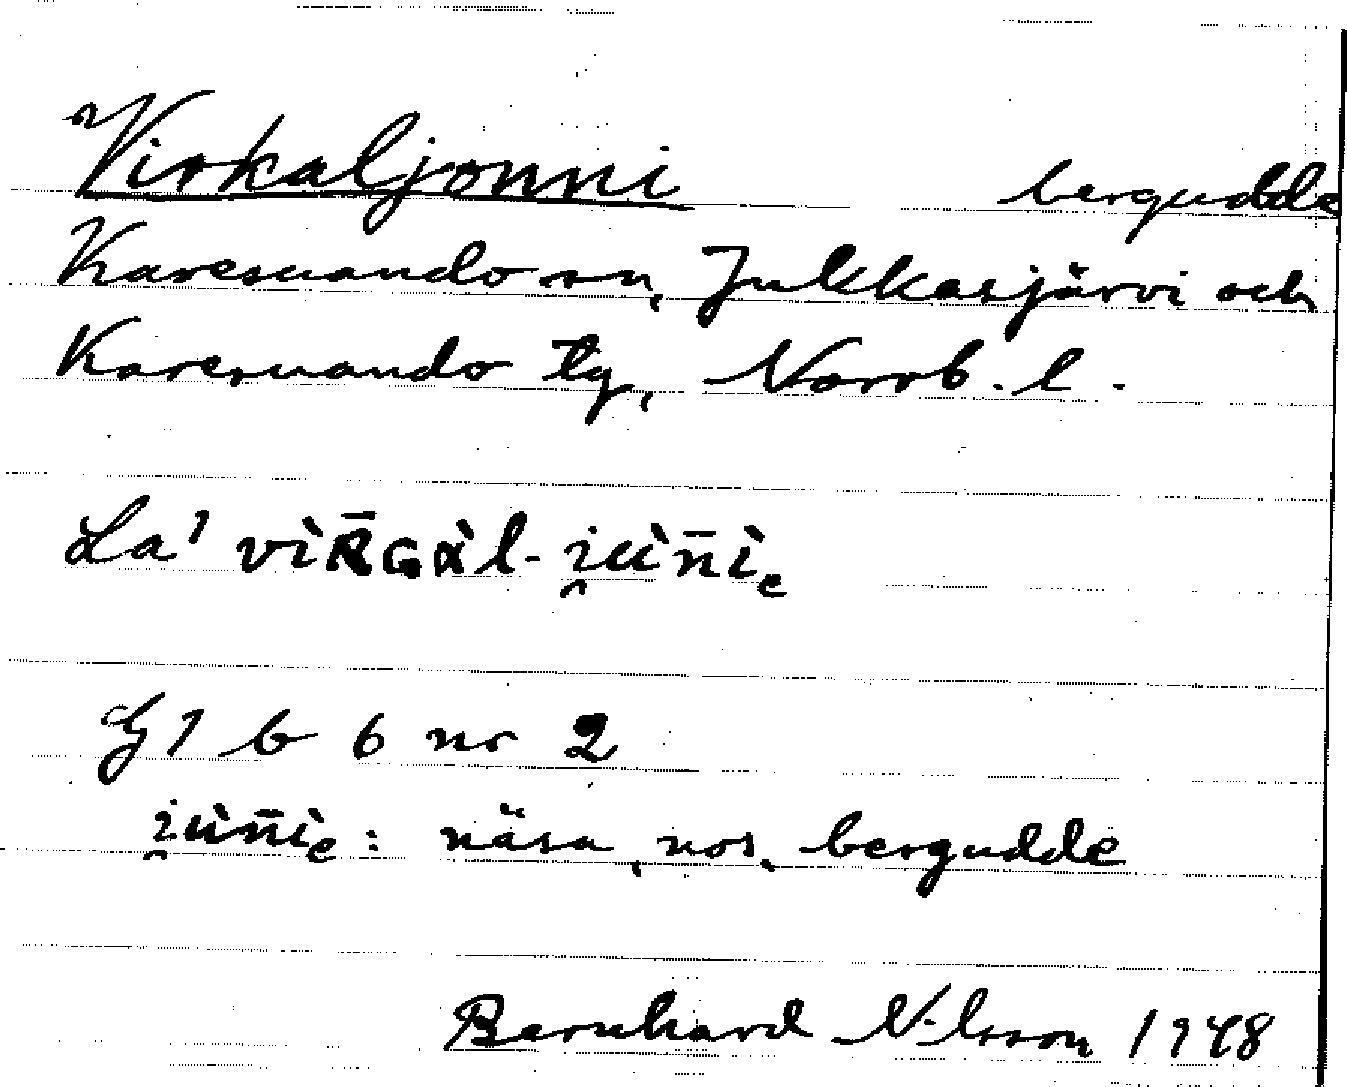 Virkaljonni bergudde
Karesuando sn, Jukkasjärvi och
Karesuando tg, Norrb. l.
La'
G1 b 6 nr 2
: näsa, nos, bergudde
Bernhard Nilsson 1948